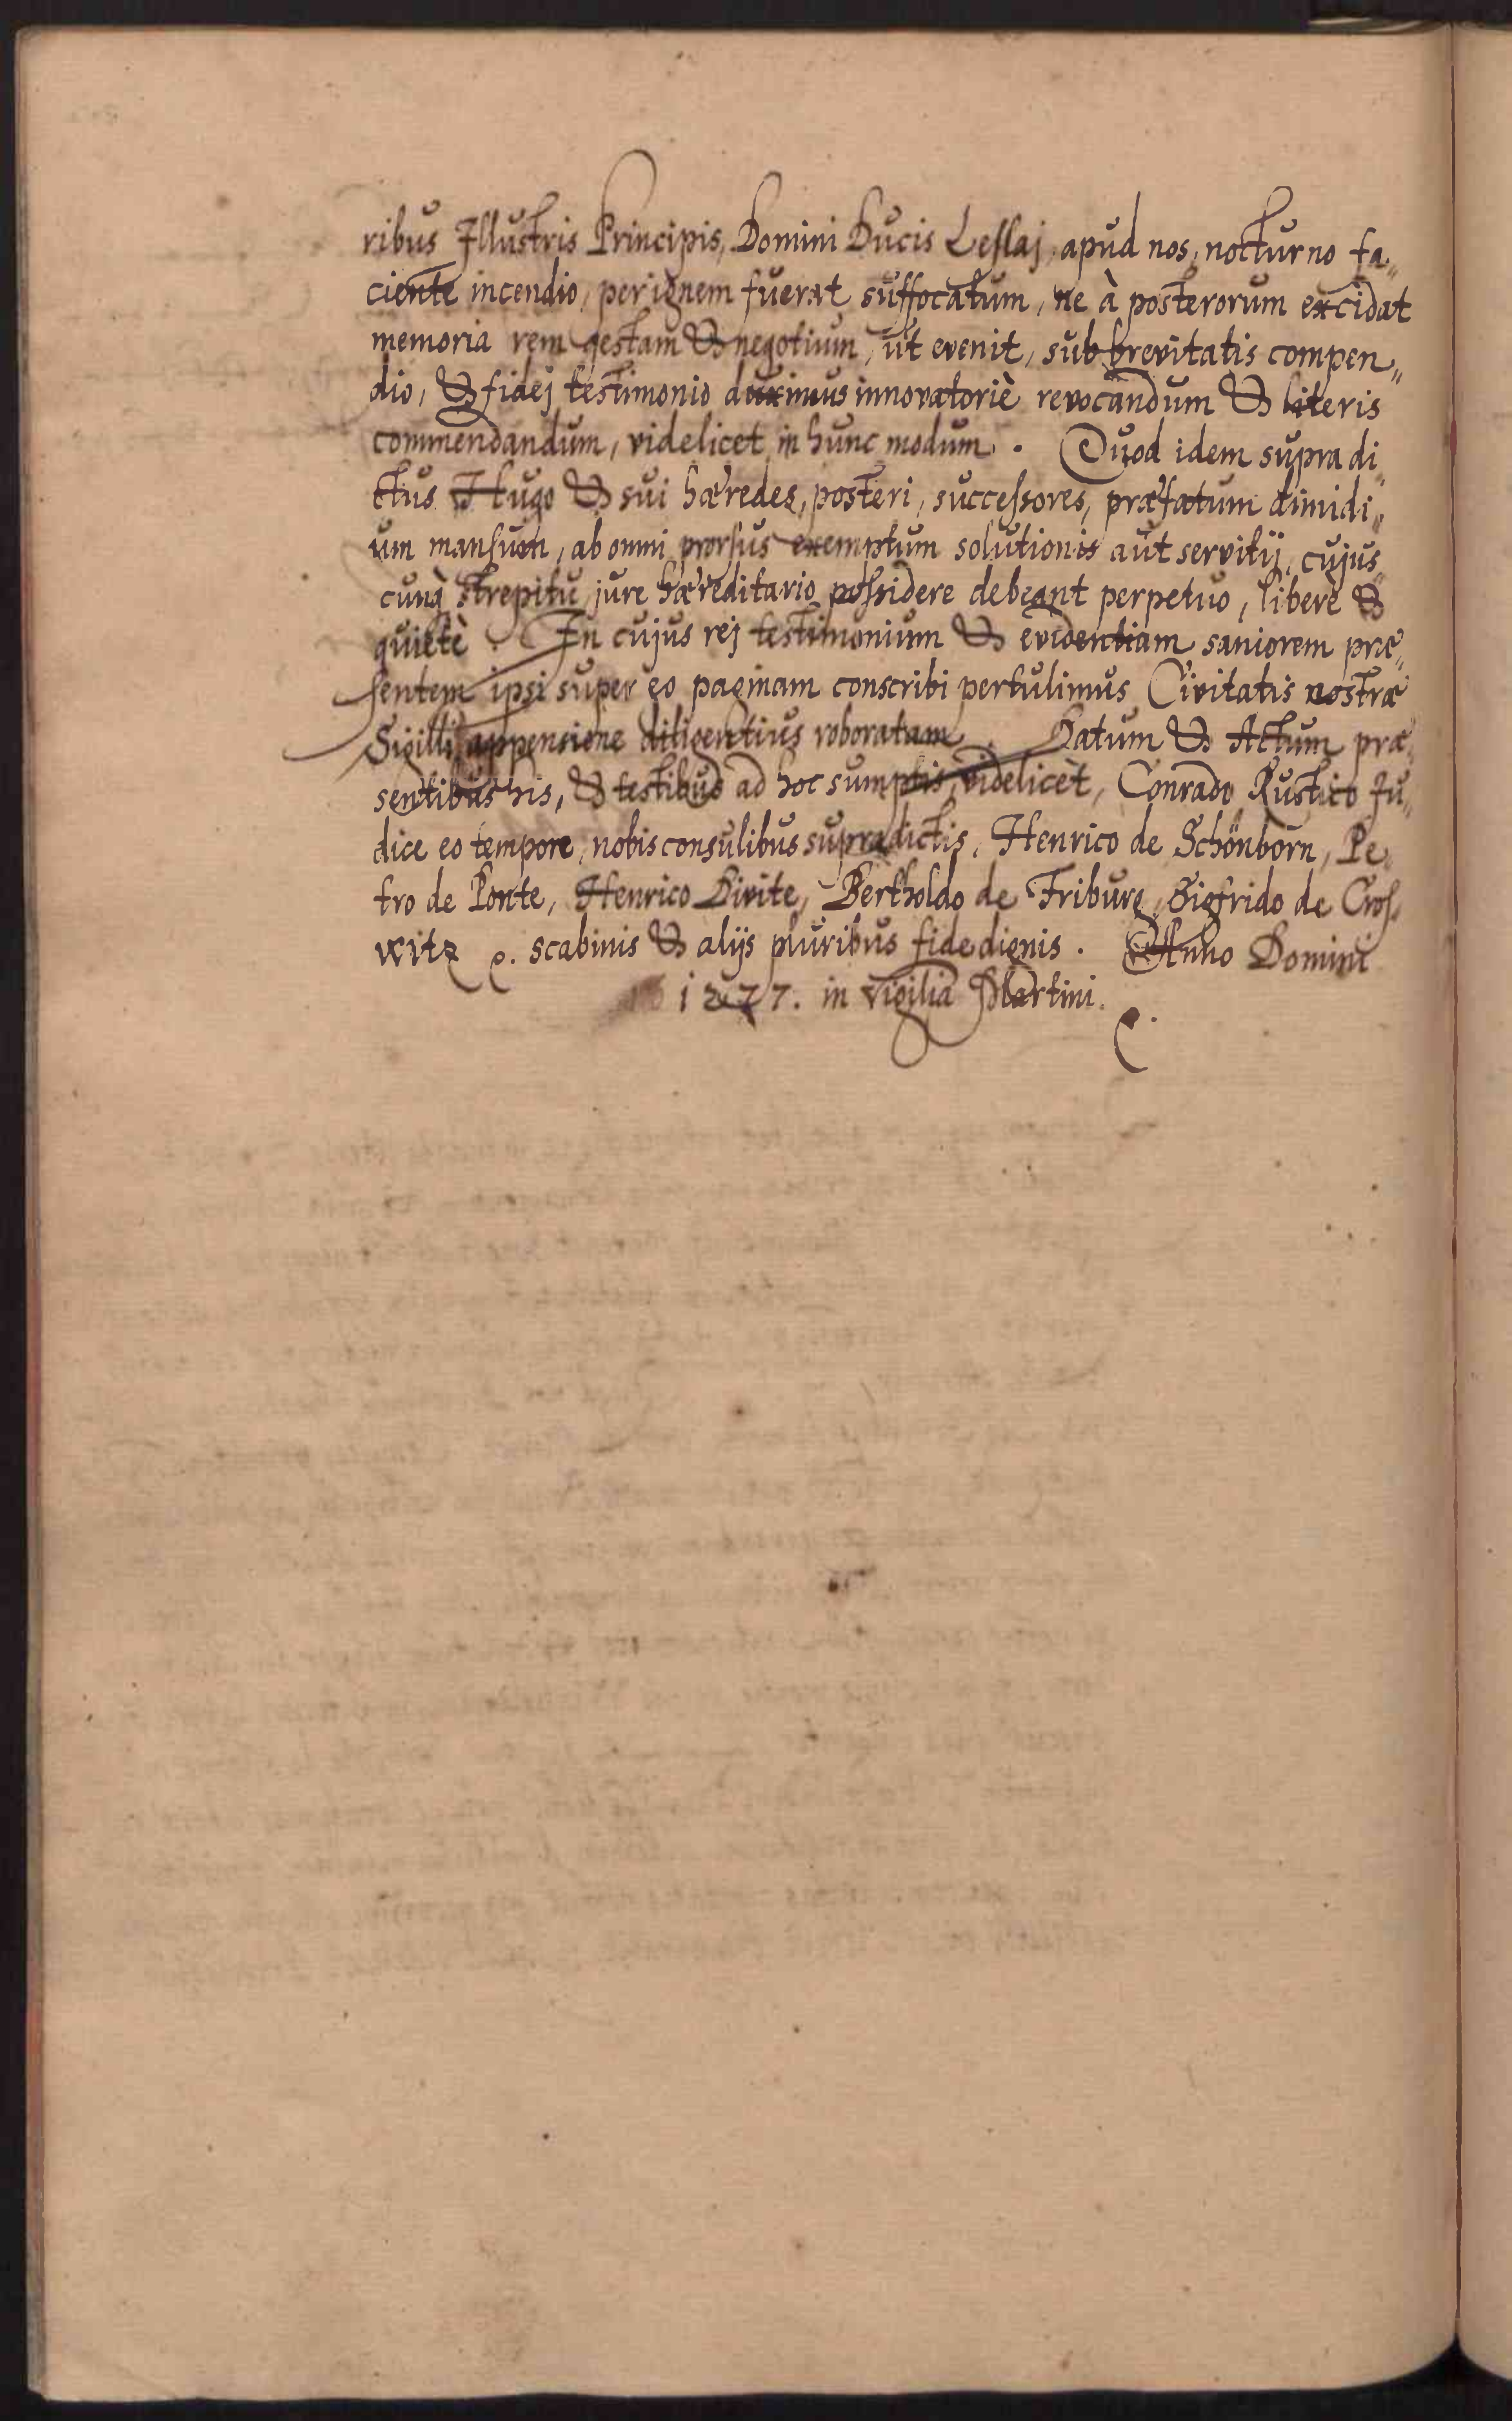 ribus Illustris Principis, Domini Ducis Leslaj, apud nos, nocturno fa„
ciente incendio, per ignem fuerat suffocatum, ne à posterorum excidat
memoria rem gestam & negotium, ut evenit, sub brevitatis compen„
dio, & fidej testimonio duximus innovatoriè revocandum & literis
commendandum, videlicet in hunc modum. Quod idem supra di„
ctus Hugo & sui hæredes, posteri, successores, præfatum dimidi„
um mansum, ab omni prorsus exemptum solutionis aut servitij, cujus„
cunq strepitu, jure hæreditario possidere debeant perpetuo, liberè &
quietè. In cujus rej testimonium & evidentiam saniorem præ„
sentem ipsi super eo paginam conscribi pertulimus Civitatis nostræ
Sigilli appensione diligentius roboratam. Datum & Actum præ„
sentibus his, & testibus ad hoc sumptis, videlicèt, Conrado Rustico Ju„
dice eo tempore, nobis consulibus supradictis, Henrico de Schönborn, Pe„
tro de Ponte, Henrico Divite, Bertholdo de Friburg, Sigfrido de Cros„
witz. scabinis & alijs pluribus fide dignis. Anno Domini
1277. in vigilia Martini.